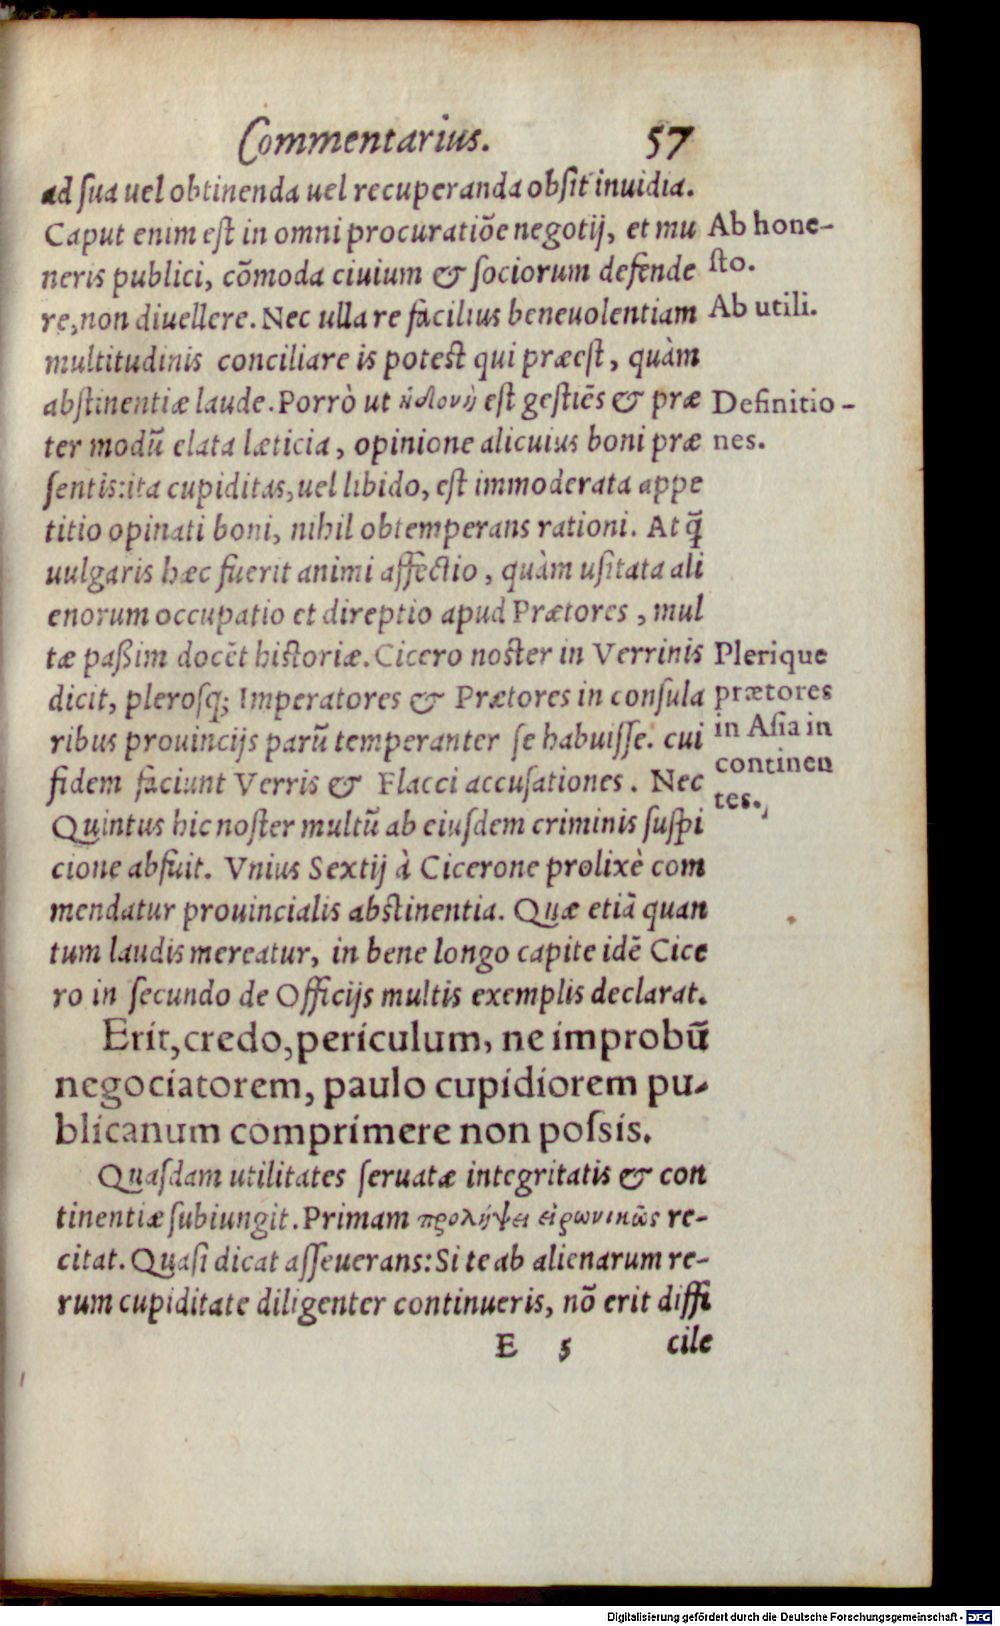 Commentarius. 57
ad ſua uel obtinenda uel recuperanda obſit inuidia.
Caput enim eſt in omni procuratiōe negotij, et mu
neris publici, cōmoda ciuium & ſociorum defende
re, non diuellere. Nec ulla re facilius beneuolentiam
multitudinis conciliare is poteſt qui præeſt, quàm
abſtinentiæ laude. Porrò ut ἡδονὴ eſt geſtiēs & præ
ter modū elata læticia, opinione alicuius boni præ
ſentis: ita cupiditas, uel libido, eſt immoderata appe
titio opinati boni, nihil obtemperans rationi. At q̃
uulgaris hæc fuerit animi affectio, quàm uſitata ali
enorum occupatio et direptio apud Prætores, mul
tæ paßim docēt hiſtoriæ. Cicero noſter in Verrinis
dicit, pleroſq; Imperatores & Prætores in conſula
ribus prouincijs parū temperanter ſe habuiſſe. cui
fidem faciunt Verris & Flacci accuſationes. Nec
Quintus hic noſter multū ab eiuſdem criminis ſuſpi
cione abfuit. Vnius Sextij à Cicerone prolixè com
mendatur prouincialis abſtinentia. Quæ etiā quan
tum laudis mereatur, in bene longo capite idē Cice
ro in ſecundo de Officijs multis exemplis declarat.
Erit, credo, periculum, ne improbū
negociatorem, paulo cupidiorem pu-
blicanum comprimere non poſsis.
Quaſdam utilitates ſeruatæ integritatis & con
tinentiæ ſubiungit. Primam προλήψει εἰρωνικῶς re-
citat. Quaſi dicat aſſeuerans: Si te ab alienarum re-
rum cupiditate diligenter continueris, nō erit diffi
E 5 cile
Ab hone-
ſto.
Ab utili.
Definitio-
nes.
Plerique
prætores
in Aſia in
continen
tes.
Digitalisierung gefördert durch die Deutsche Forschungsgemeinschaft - DFG